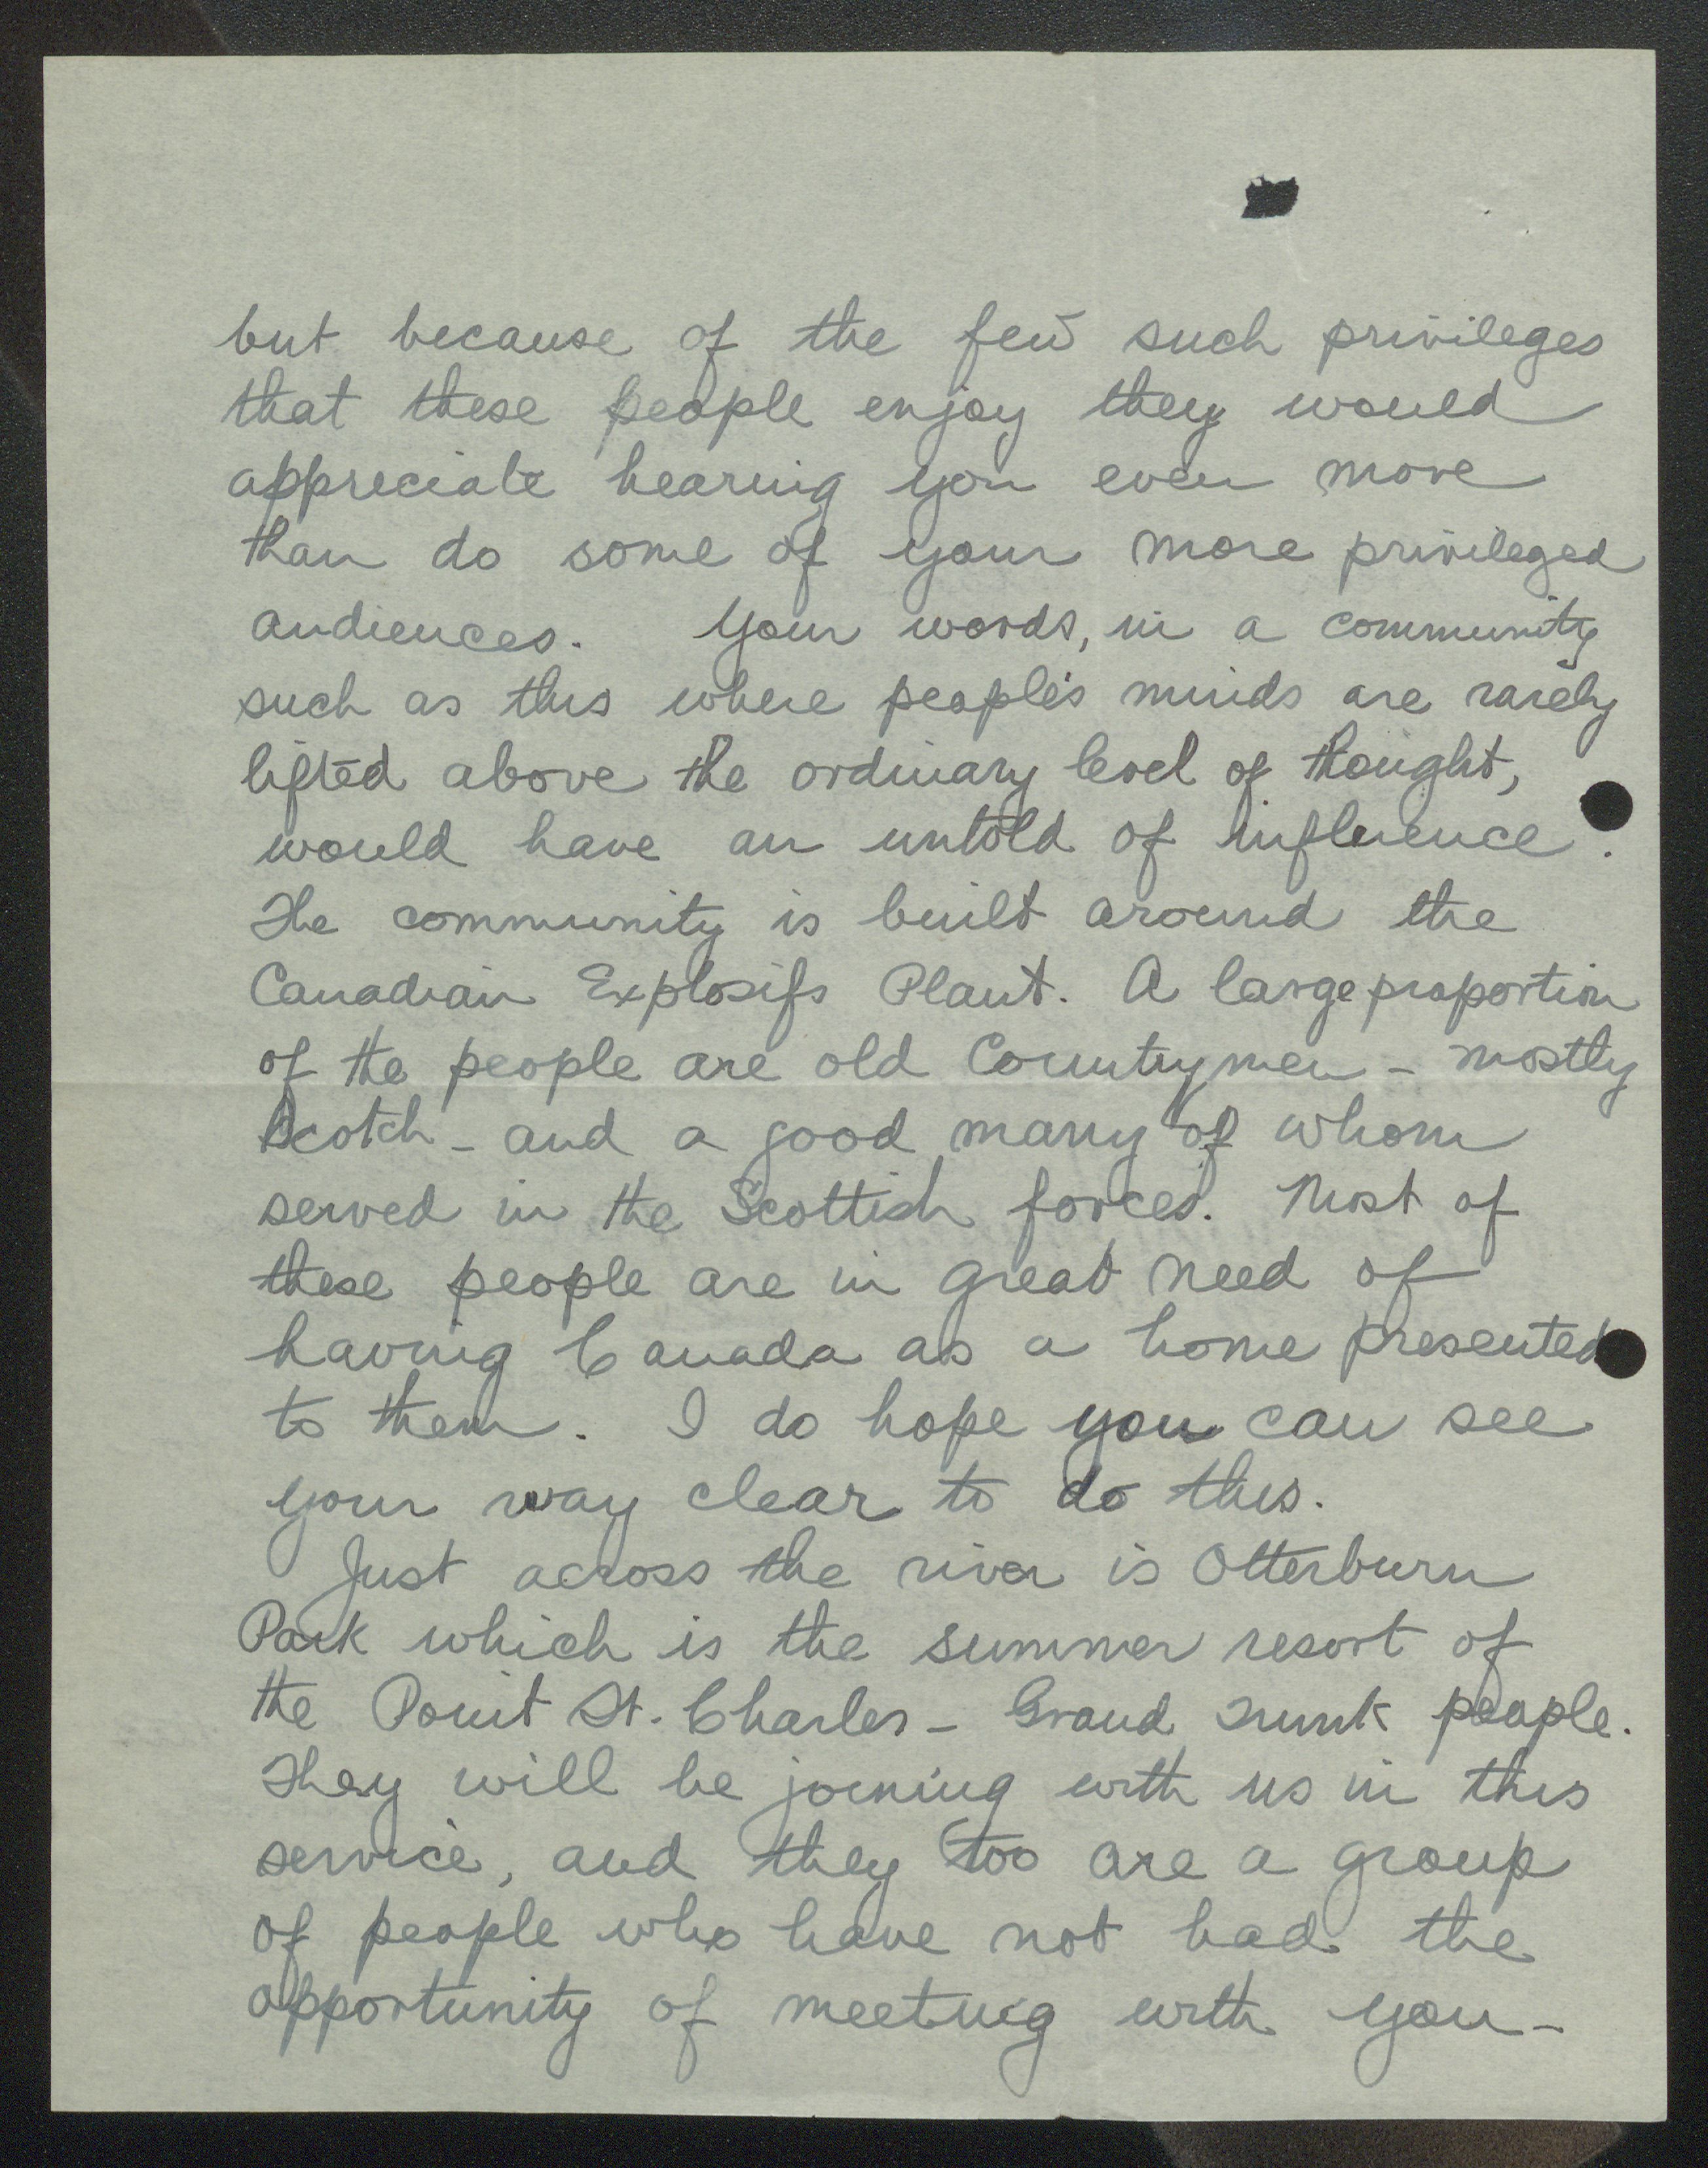 but because of the few such privileges
that these people enjoy they would
appreciate hearing you even more
than do some of your more privileged
audiences. Your words, in a community
such as this where people's minds are rarely
lifted above the ordinary level of thought,
would have an untold of influence.
The community is built around the
Canadian Explosifs Plant. A large proportion
of the people are old Countrymen - mostly
Scotch - and a good many of whom
served in the Scottish forces. Most of
these people are in great need of
having Canada as a home presented
to them. I do hope you can see
your way clear to do this.
Just across the river is Otterburn
Park which is the summer resort of
the Point St. Charles - Grand Trunk people.
They will be joining with us in this
service, and they too are a group
of people who have not had the
opportunity of meeting with you -